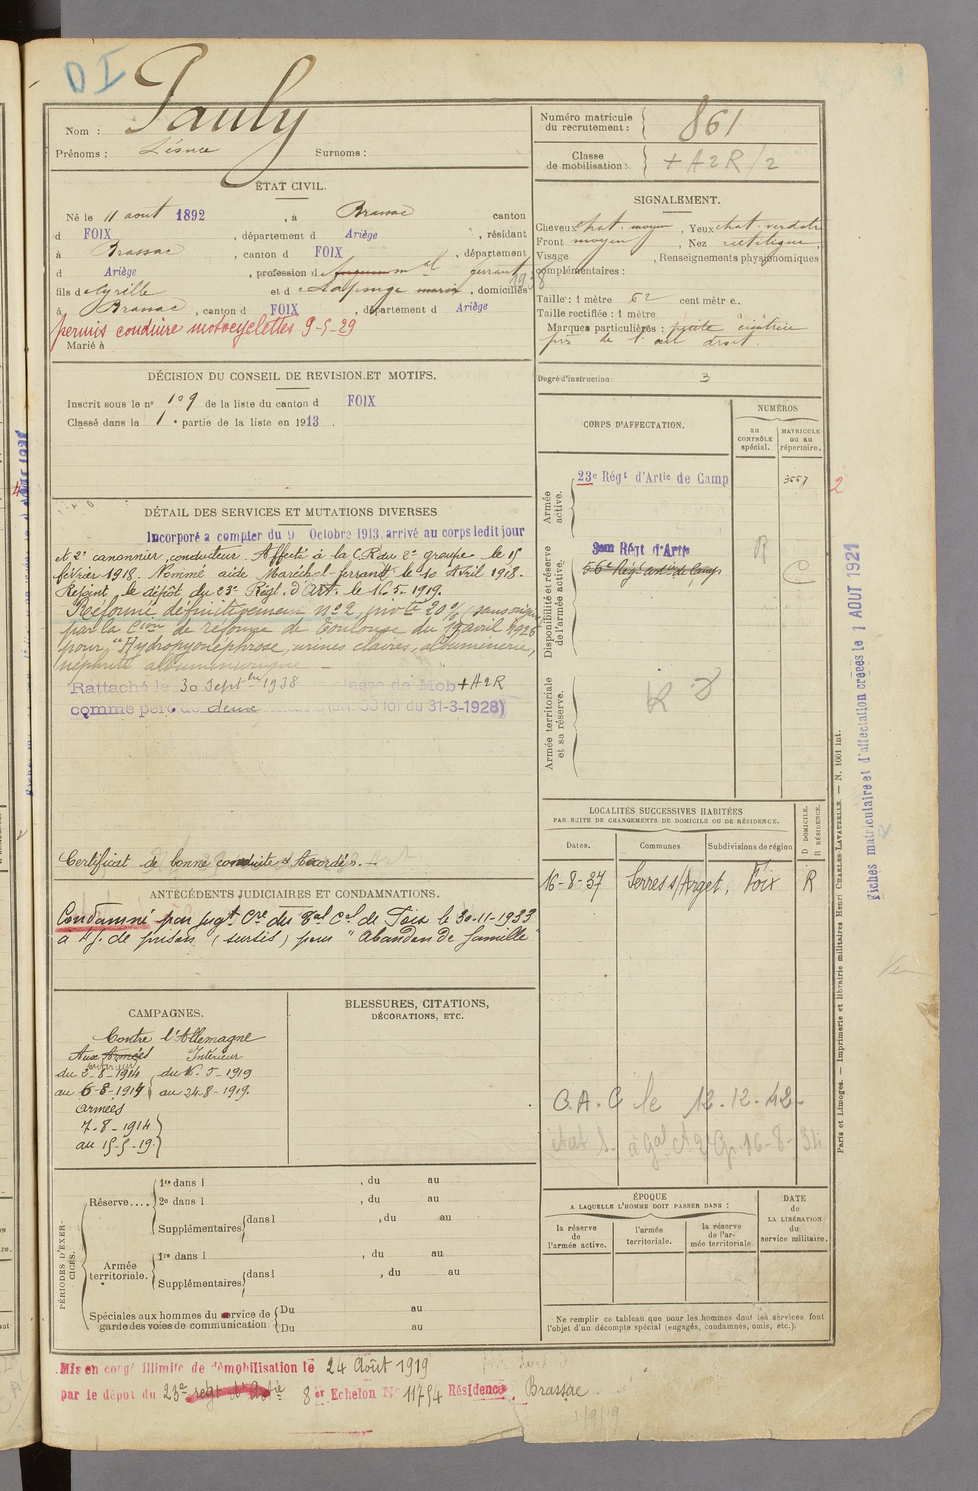 DI
Nom : Pauly
Prénoms : Surnoms :
Numéro matricule du recrutement : 861
Classe de mobilisation : + A 2 R / 2
ÉTAT CIVIL.
Né le 11 août 1892, à Brassac canton
d FOIX, département d Ariège, résidant
à Brassac, canton d FOIX, département
d Ariège, profession de mal ferrant
fils de Cyrille et de marin, domiciliés
à Brassac, canton d FOIX, département d Ariège
permis conduire motocyclettes 9-5-29
Marié à
SIGNALEMENT.
Cheveux chat. moyen, Yeux chat. verdatre
Front moyen, Nez rectiligne,
Visage , Renseignements physionomiques
complémentaires :
Taille : 1 mètre 62 centimètre.
Taille rectifiée : 1 mètre
Marques particulières : petite cicatrice
près de l'œil droit.
Degré d'instruction : 3
DÉCISION DU CONSEIL DE REVISION ET MOTIFS.
Inscrit sous le n° 109 de la liste du canton d FOIX
Classé dans la 1e partie de la liste en 1913.
CORPS D'AFFECTATION.
NUMÉROS
AU CONTRÔLE spécial.
MATRICULE ou au répertoire.
Armée active.
23e Régt d'Artie de Camp 3557
2
Disponibilité et réserve de l'armée active.
Régt d'Artie
56e Régt art de Camp
R
C
Armée territoriale et sa réserve.
DÉTAIL DES SERVICES ET MUTATIONS DIVERSES
Incorporé à compter du 9 Octobre 1913, arrivé au corps ledit jour
et 2e canonnier conducteur. Affecté à la C.R. du 2e groupe le 15
février 1918. Nommé aide Maréchal-ferrant le 10 Avril 1918.
Rejoint le dépôt du 23e Régt. d'Art. le 16.5.1919.
Réformé définitivement n°2, invté 20% (sans origine)
par la Cion de réforme de Toulouse du avril 1926
pour "Hydropyonéphrose, urines claires, albuminerie,
néphrite albuminurique
Rattaché le 30 Septbre 1938 classe de Mob + A2R
comme père de deux loi du 31-3-1928)
Certificat de bonne conduite "Accordé".
LOCALITÉS SUCCESSIVES HABITÉES
PAR SUITE DE CHANGEMENTS DE DOMICILE OU DE RÉSIDENCE.
D DOMICILE. R RÉSIDENCE.
Dates. Communes. Subdivisions de région
16-8-37 Serres s/Arget, Foix R
ANTÉCÉDENTS JUDICIAIRES ET CONDAMNATIONS.
Condamné par jugt Cre du Bal Cal de Foix le 30-11-1933
à 4 j. de prison (sursis) pour "Abandon de famille"
CAMPAGNES.
Contre l'Allemagne
Aux Armées Intérieur
du 2-8-1914 du 16-5-1919
au 6-8-1914 au 24-8-1919.
armées
7-8-1914
au 15-5-19
BLESSURES, CITATIONS,
DÉCORATIONS, ETC.
O.A.C le 12.12.42
PÉRIODES D'EXERCICES.
Réserve....
1re dans l , du au
2e dans l , du au
Supplémentaires dans l , du au
Armée territoriale.
1re dans l , du au
Supplémentaires dans l , du au
Spéciales aux hommes du service de garde des voies de communication.
Du au
Du au
ÉPOQUE
A LAQUELLE L'HOMME DOIT PASSER DANS :
la réserve de l'armée active.
l'armée territoriale.
la réserve de l'armée territoriale.
DATE de LA LIBÉRATION du service militaire.
Ne remplir ce tableau que pour les hommes dont les services font
l'objet d'un décompte spécial (engagés, condamnés, omis, etc.).
Mis en congé illimité de démobilisation le 24 Août 1919
par le dépôt du 23e régt d'Artie 8er Echelon N° 11754 Résidence Brassac
1/9/19
Paris et Limoges. — Imprimerie et librairie militaires Henri CHARLES-LAVAUZELLE. — N. 1001 int.
Fiches matriculaire et d'affectation créées le 1 AOUT 1921